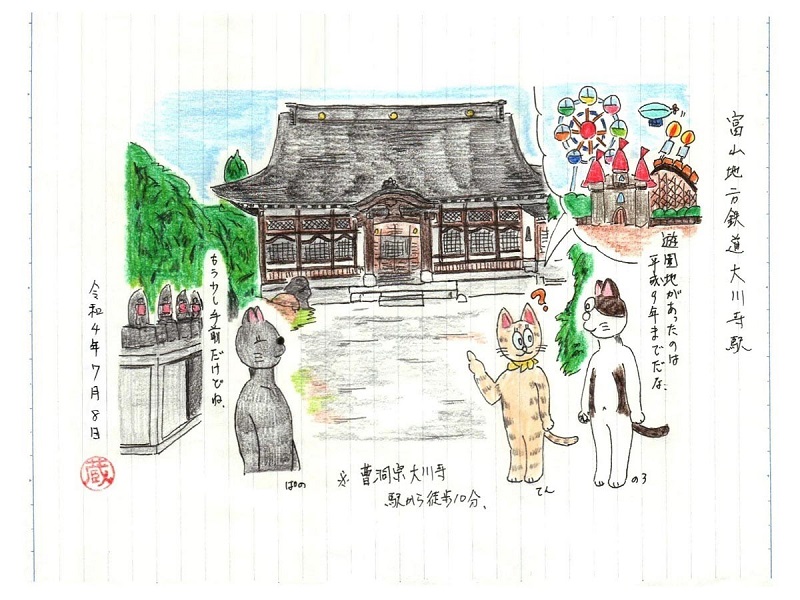 富山地方鉄道大川寺駅
遊園地があったのは
平成9年までだな。
もう少し手前だけどね。
令和4年7月8日
蔵
ぱの
※曹洞宗大川寺
駅から徒歩10分。
てん
のろ
?